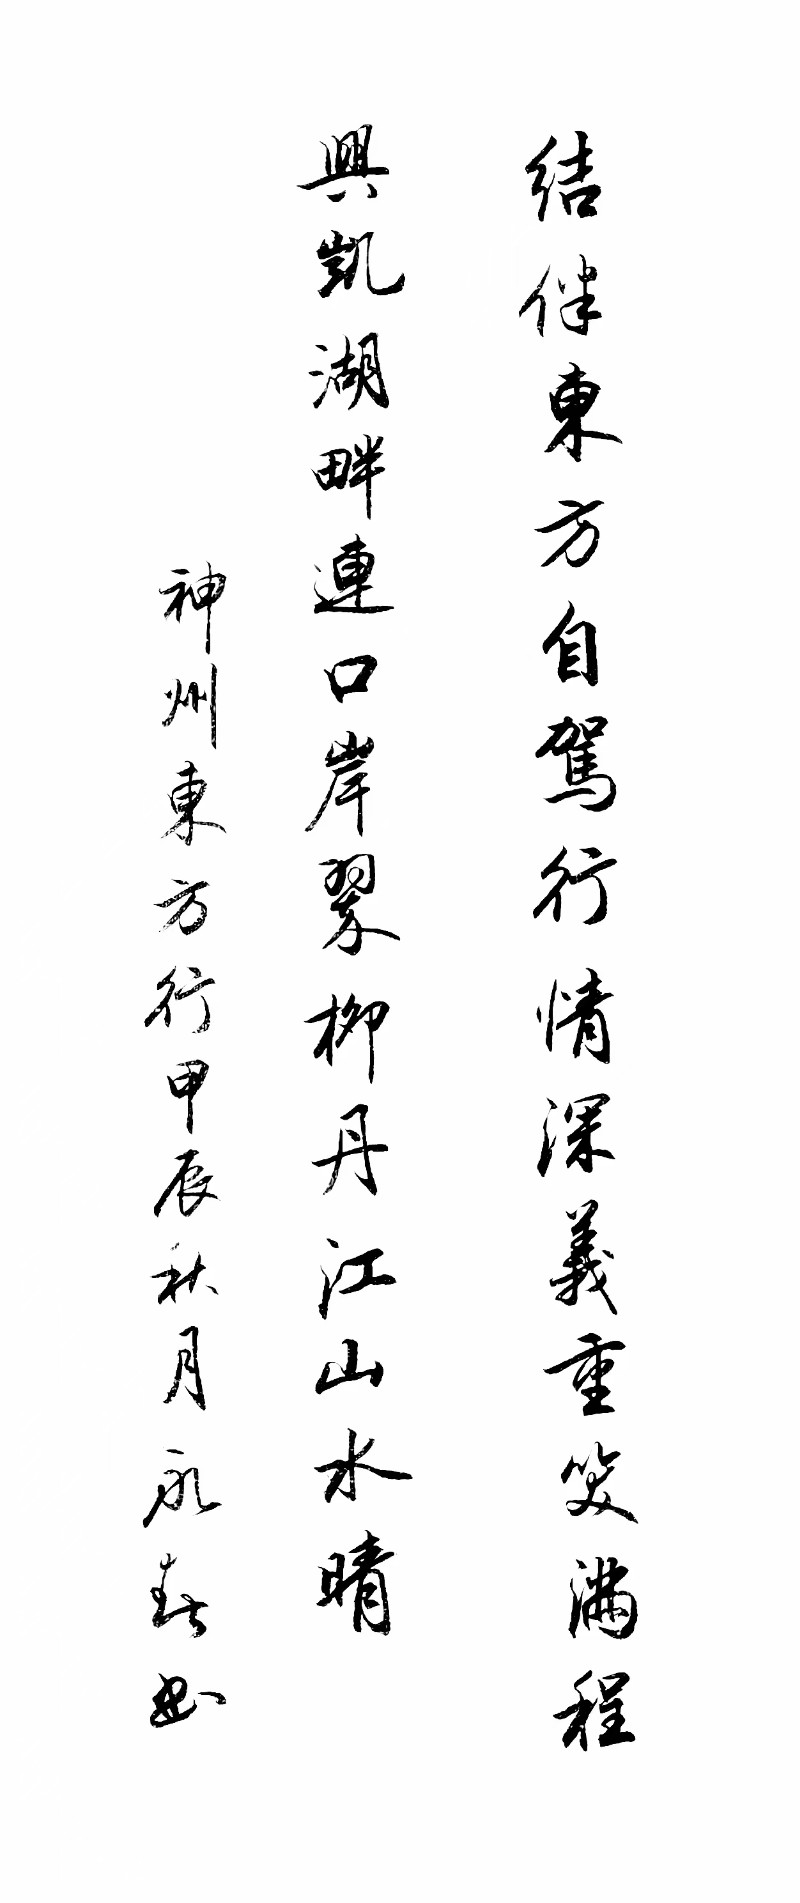 結伴東方自駕行情深義重笑滿程
興凱湖畔連口岸翠柳丹江山水晴
神州東方行甲辰秋月永春书